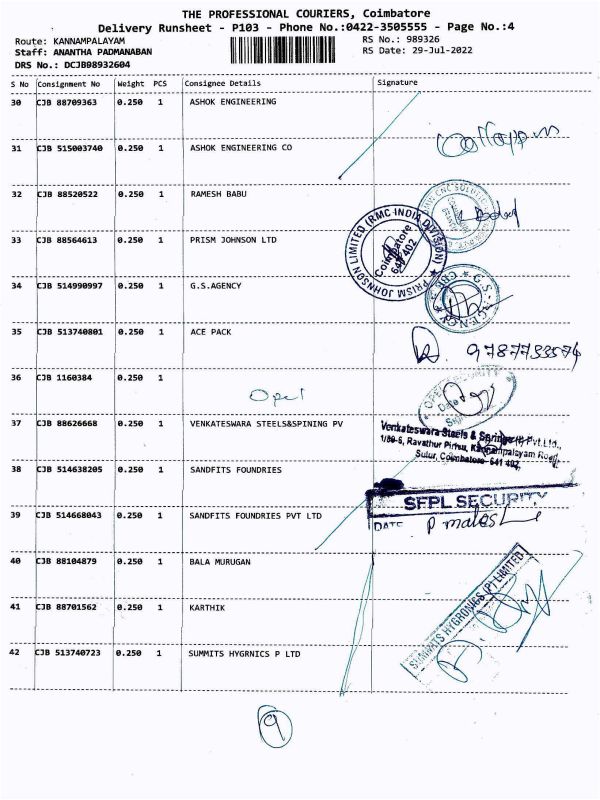 THE PROFESSIONAL COURIERS, Coimbatore
Delivery Runsheet - P103 - Phone No.:0422-3505555 - Page No.:4
Route: KANNAMPALAYAM RS No.: 989326
Staff: ANANTHA PADMANABAN RS Date: 29-Jul-2022
DRS No.: DCJB98932604
S No Consignment No Weight PCS Consignee Details Signature
30 CJB 88709363 0.250 1 ASHOK ENGINEERING
31 CJB 515003740 0.250 1 ASHOK ENGINEERING CO
32 CJB 88520522 0.250 1 RAMESH BABU
33 CJB 88564613 0.250 1 PRISM JOHNSON LTD
PRISM JOHNSON LIMITED (RMC INDIA DIVISION)
Coimbatore
641 402
34 CJB 514990997 0.250 1 G.S.AGENCY
G.S. AGENCY
CBE
35 CJB 513740801 0.250 1 ACE PACK
36 CJB 1160384 0.250 1
Opel
OPEL SECURITY
Date
37 CJB 88626668 0.250 1 VENKATESWARA STEELS&SPINING PV
Venkateswara Steels & Springs (I) Pvt.Ltd.,
1/89-6, Ravathur Pirivu, Kannampalayam Road,
Sulur, Coimbatore- 641 402.
38 CJB 514638205 0.250 1 SANDFITS FOUNDRIES
SFPL SECURITY
DATE
39 CJB 514668043 0.250 1 SANDFITS FOUNDRIES PVT LTD
40 CJB 88104879 0.250 1 BALA MURUGAN
41 CJB 88701562 0.250 1 KARTHIK
42 CJB 513740723 0.250 1 SUMMITS HYGRNICS P LTD
SUMMITS HYGRONICS (P) LIMITED
9